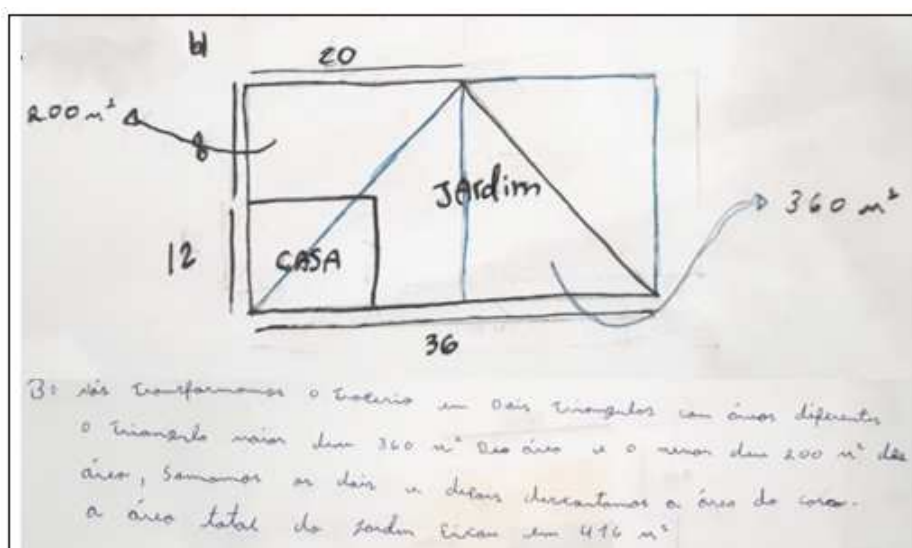 b)
20
200 m²
8
JArdim
360 m²
12
CASA
36
B: nós transformamos o trapezio em Dois triangulos com áreas diferentes
o triangulo maior deu 360 m² De área e o menor deu 200 m² de
área, Somamos os dois e depois descontamos a área da casa.
a área total do Jardin ficou em 416 m²